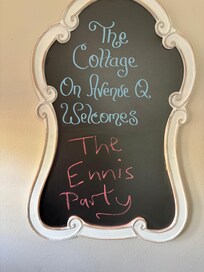 The
Cottage
On Avenue Q
Welcomes
The
Ennis
Party